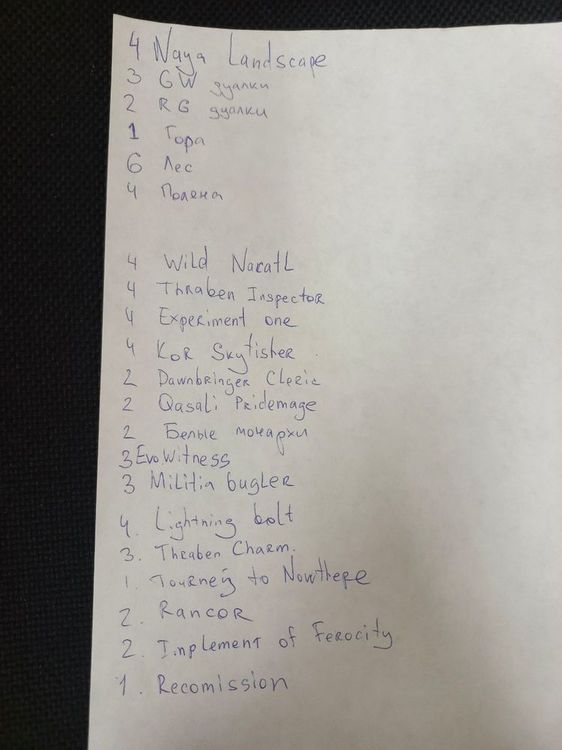 4 Naya Landscape
3 GW дуалки
2 RG дуалки
1 Гора
6 Лес
4 Поляна
4 Wild Nacatl
4 Thraben Inspector
4 Experiment one
4 Kor Skyfisher
2 Dawnbringer Cleric
2 Qasali Pridemage
2 Белые монархи
3 Evo Witness
3 Militia bugler
4. Lightning bolt
3. Thraben Charm.
1. Journey to Nowhere
2. Rancor
2. Inplement of Ferocity
1. Recomission